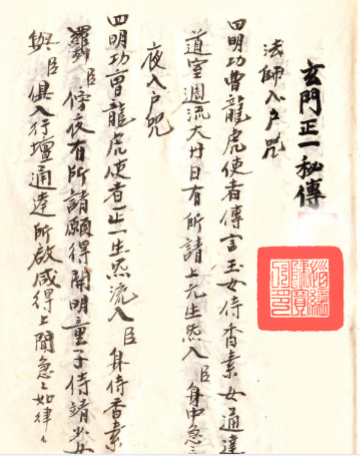 玄門正一秘傳
法師入户咒
四明功曹龍虎使者傳言玉女侍香素女通達
道室週流 日有所請上元生炁入臣身中急
夜入户咒
四明功曹龍虎使者正一生炁流入臣身侍香素
臣 夜有所請願得開明童子侍靖少女
與臣俱入行壇通達所啟咸得上聞急〻如律〻